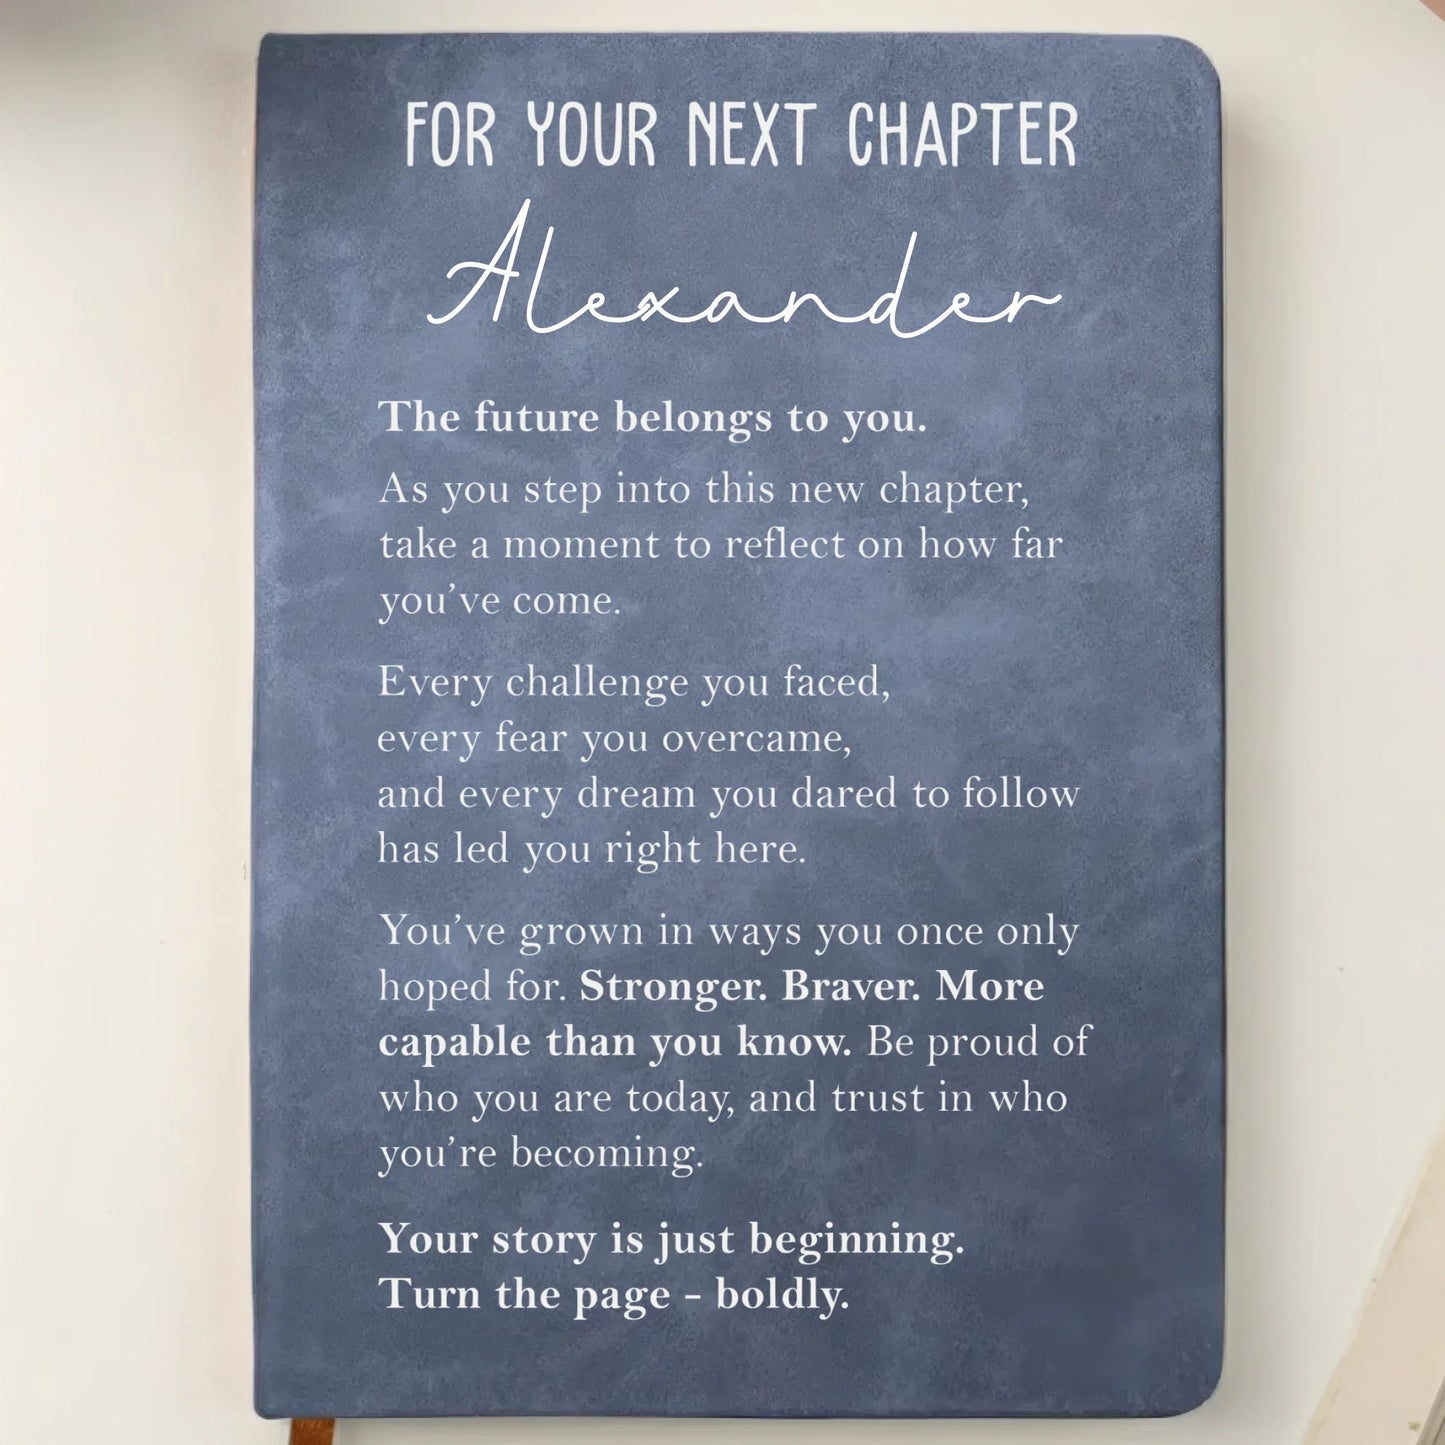 FOR YOUR NEXT CHAPTER
Alexander
The future belongs to you.
As you step into this new chapter,
take a moment to reflect on how far
you’ve come.
Every challenge you faced,
every fear you overcame,
and every dream you dared to follow
has led you right here.
You’ve grown in ways you once only
hoped for. Stronger. Braver. More
capable than you know. Be proud of
who you are today, and trust in who
you’re becoming.
Your story is just beginning.
Turn the page - boldly.